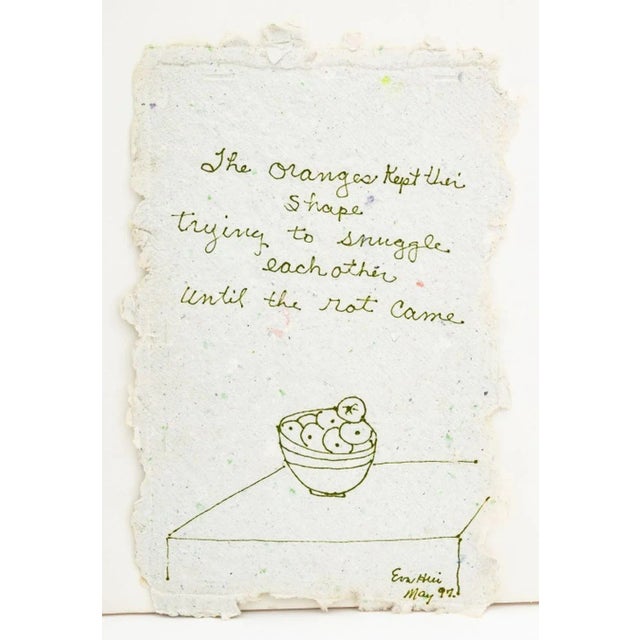 The oranges Kept their
shape
trying to snuggle
each other
until the rot came
Eva Hui
May 97.